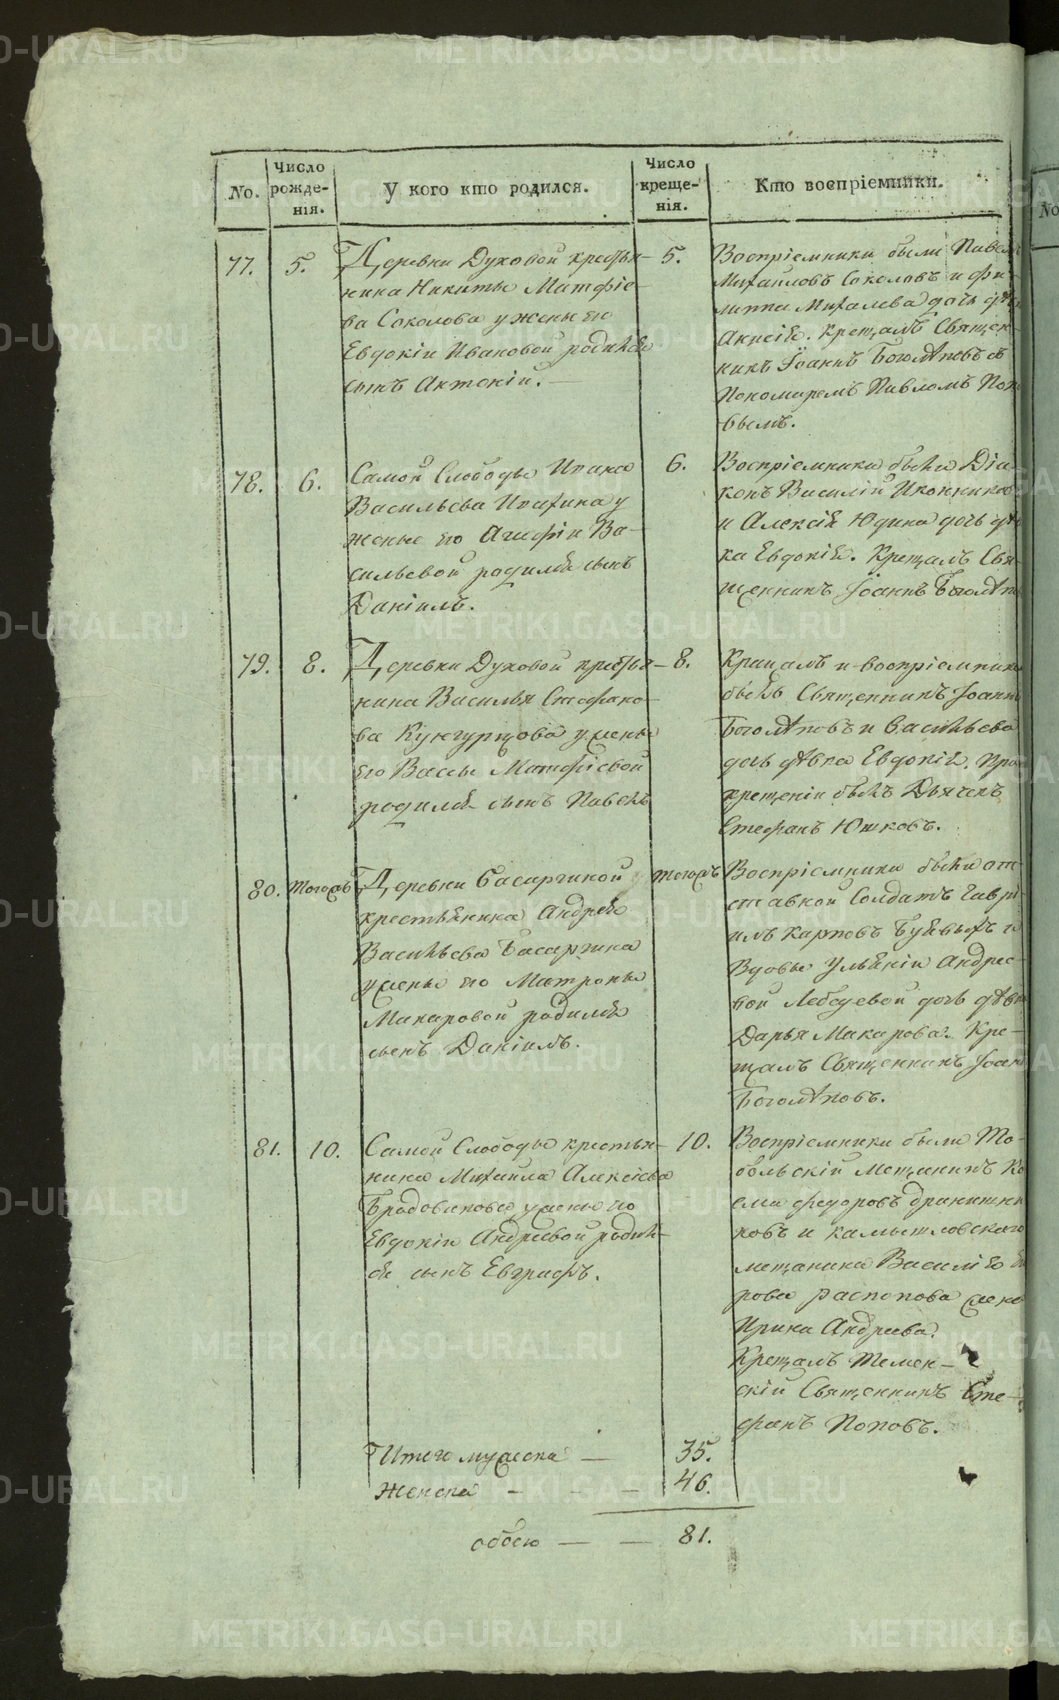 No.
Число рожде- нія.
У кого кто родился.
Число креще- нія.
Кто воспріемники.
77.
5.
Деревни Духовой крестья-
нина Никиты Матфіе-
ва Соколова у жены его
Евдокіи Ивановой родился
сынъ Антоній.
5.
Воспріемники были Павелъ
Михайловъ Соколовъ и Фи-
липпа Михалева дочь
Анисія. Крещалъ Священ-
никъ Іоаннъ Боголѣповъ съ
Пономаремъ Павломъ
вымъ.
78.
6.
Самой Слободы Ипата
Васильева Ипатина у
жены его Агафіи Ва-
сильевой родился сынъ
Даніилъ.
6.
Воспріемники были Діа-
конъ Василій Иконниковъ
и Алексія Юдина дочь дѣв-
ка Евдокія. Крещалъ Свя-
щенникъ Іоаннъ Боголѣповъ
79.
8.
Деревни Духовой крестья-
нина Василья Стефано-
ва Кунгурцова у жены
его Вассы Матфіевой
родился сынъ Павелъ
8.
Крещалъ и воспріемникъ
былъ Священникъ Іоаннъ
Боголѣповъ и Васильева
дочь дѣвка Евдокія. При
крещеніи былъ Дьячекъ
Стефанъ Юшковъ.
80.
тогожъ
Деревни Басаргиной
крестьянина Андрея
Васильева Басаргина
у жены его Матроны
Макаровой родился
сынъ Даніилъ.
тогожъ
Воспріемники были от-
ставной Солдатъ Гаврі-
илъ Карповъ и
Вдовы Ульяніи Андрее-
вой Лебедевой дочь дѣвка
Дарья Макарова. Кре-
щалъ Священникъ Іоаннъ
Боголѣповъ.
81.
10.
Самой Слободы крестья-
нина Михаила Алексіева
у жены его
Евдокіи Андреевой родил-
ся сынъ Евграфъ.
10.
Воспріемники были То-
больскій Мещанинъ
Федоровъ
ковъ и Камышловскаго
мещанина Василія
рова Распопова жена
Ирина Андреева.
Крещалъ
скій Священникъ Сте-
фанъ Поповъ.
Итого мужеска — 35.
Женска - - - 46.
обоего — — 81.
METRIKI.GASO-URAL.RU